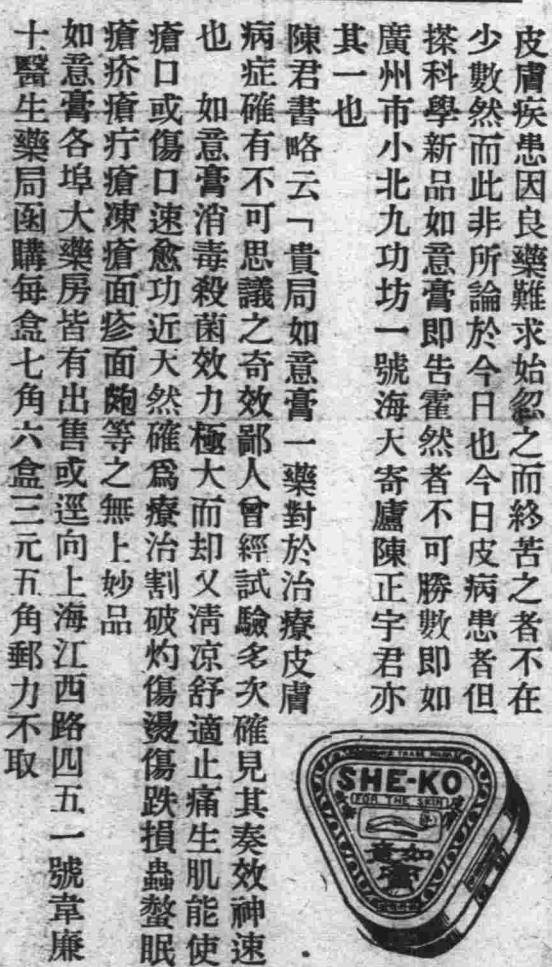 皮膚疾患因良藥難求始忽之而終苦之者不在
少數然而此非所論於今日也今日皮病患者但
搽科學新品如意膏即告霍然者不可勝數即如
廣州市小北九功坊一號海天寄廬陳正宇君亦
其一也
陳君書略云「貴局如意膏一藥對於治療皮膚
病症確有不可思議之奇效鄙人曾經試驗多次確見其奏效神速
也　如意膏消毒殺菌效力極大而却又清凉舒適止痛生肌能使
瘡口或傷口速愈功近天然確爲療治割破灼傷燙傷跌損蟲螫眠
瘡疥瘡疔瘡凍瘡面疹面皰等之無上妙品
如意膏各埠大藥房皆有出售或逕向上海江西路四五一號韋廉
士醫生藥局函購每盒七角六盒三元五角郵力不取
SHE-KO
FOR THE SKIN
如意
膏